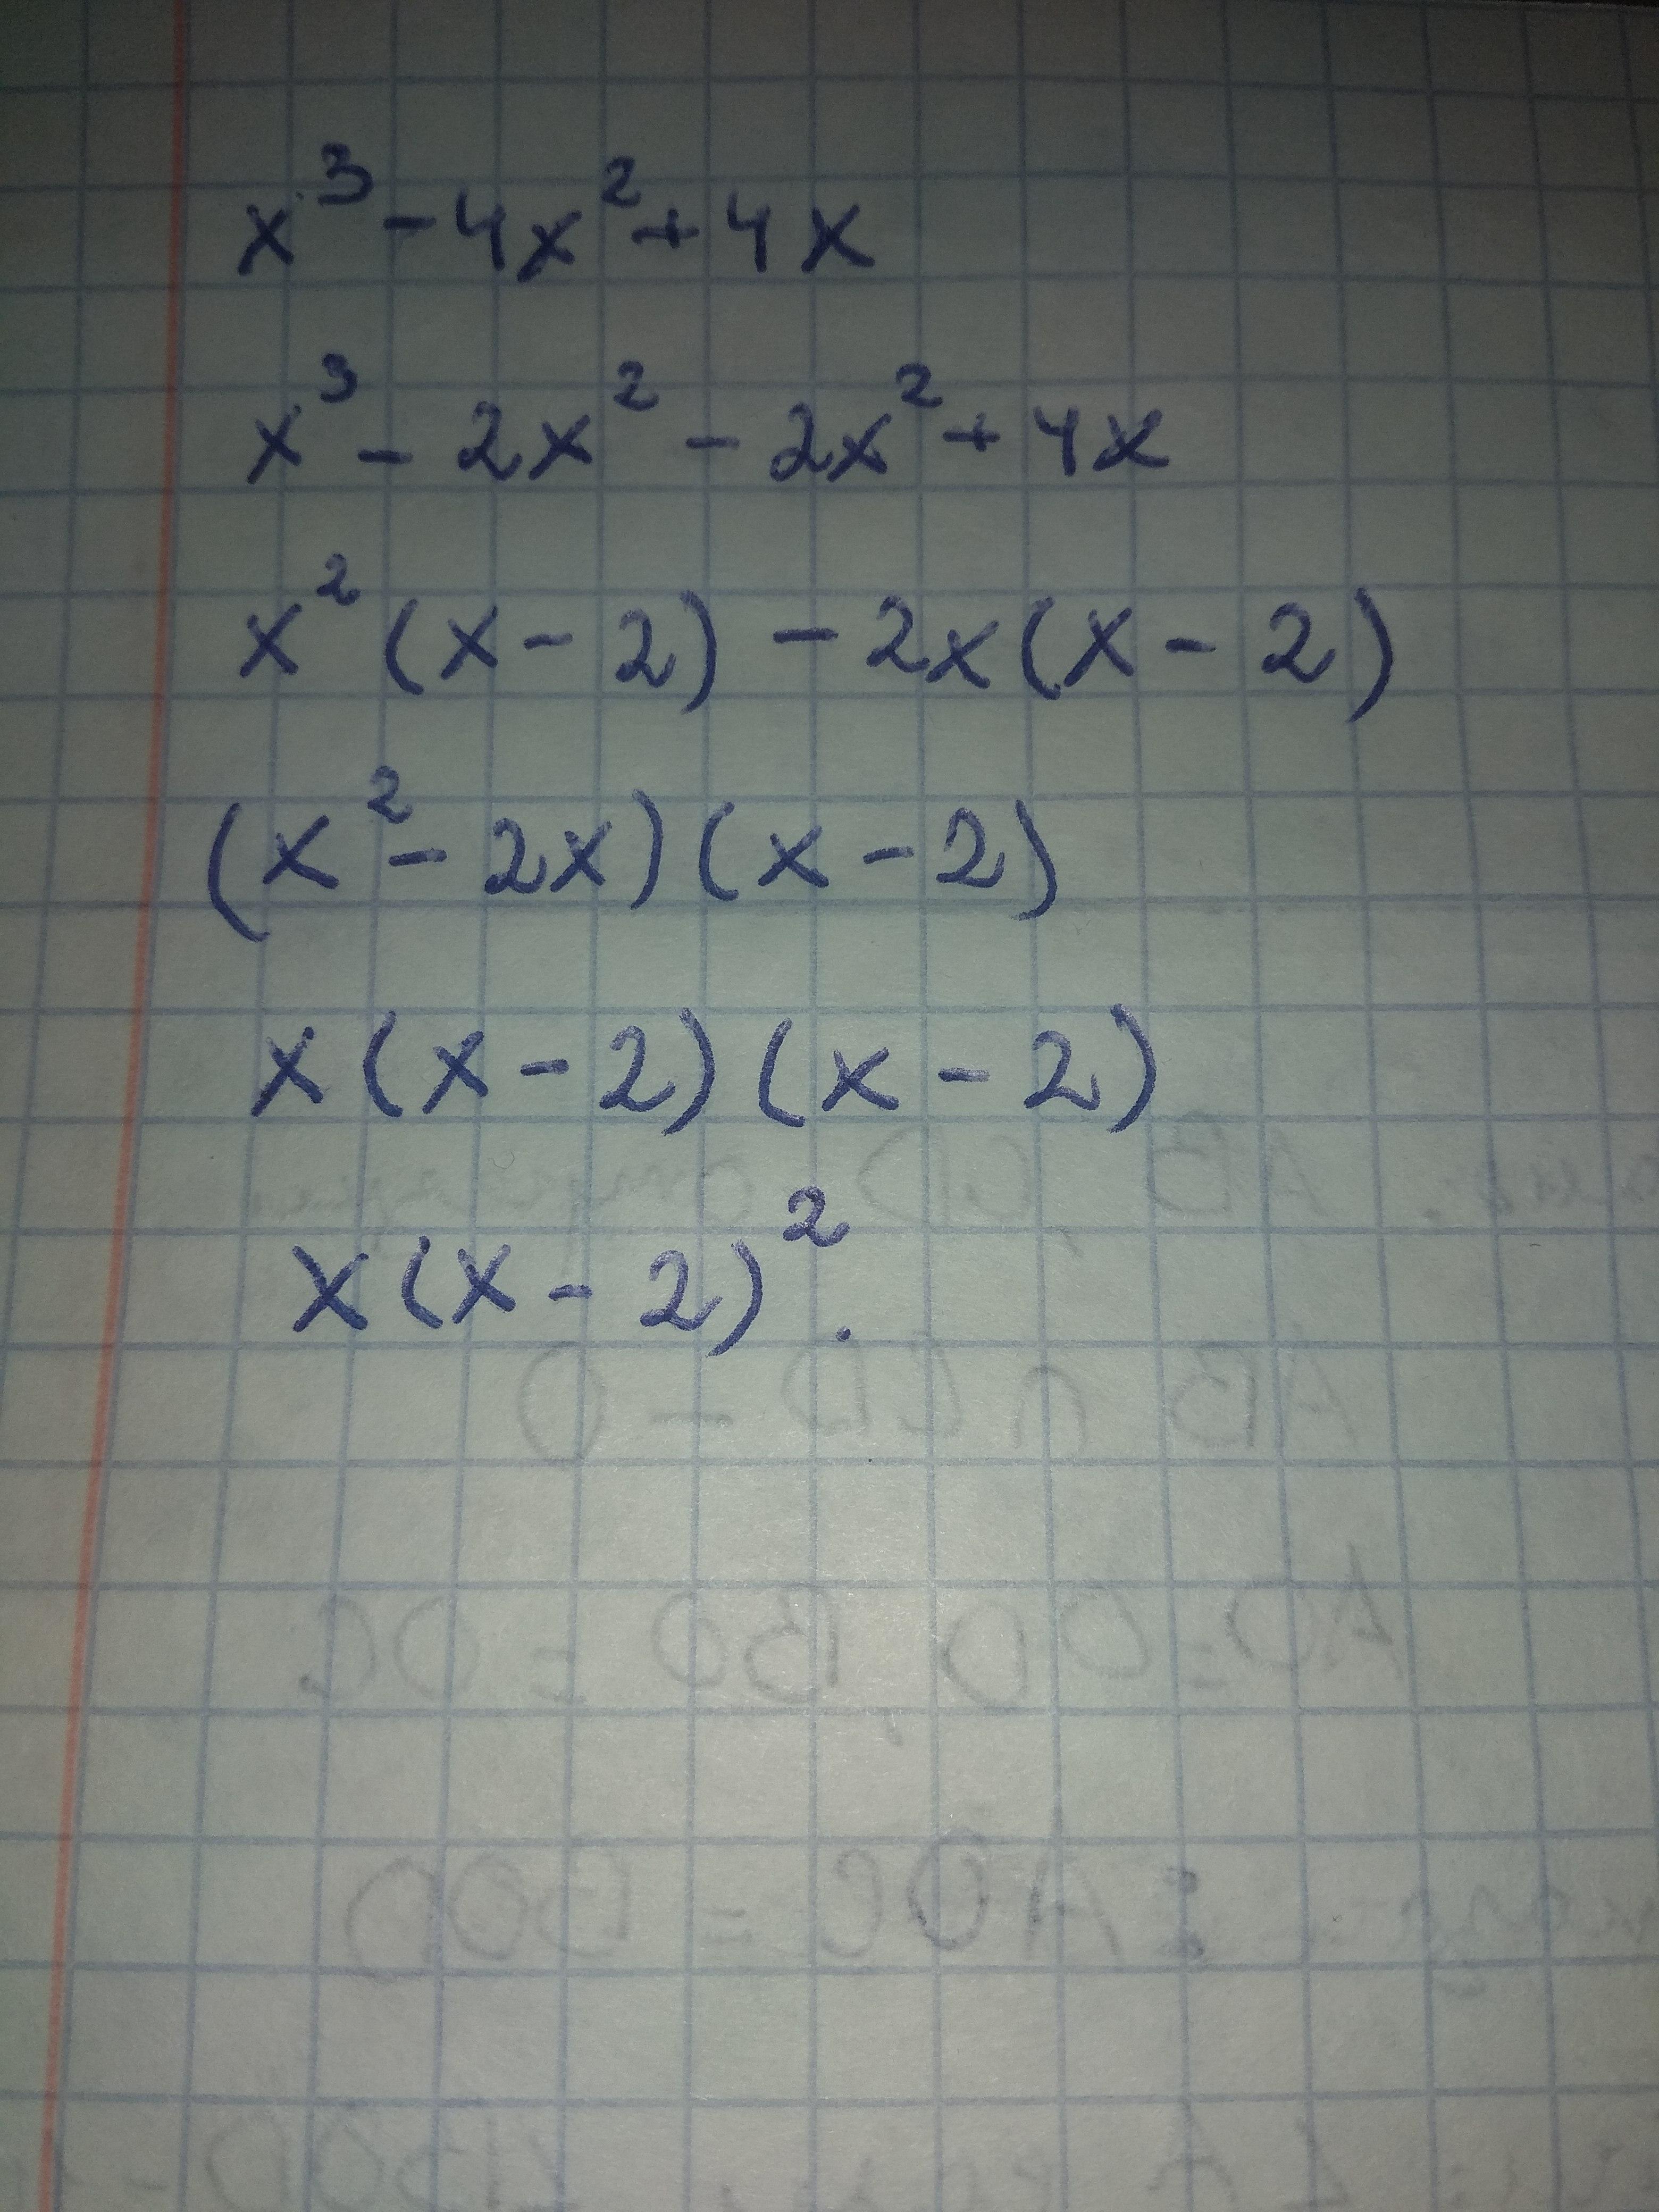 x³ - 4x² + 4x
x³ - 2x² - 2x² + 4x
x² (x - 2) - 2x (x - 2)
(x² - 2x) (x - 2)
x (x - 2) (x - 2)
x (x - 2)² .